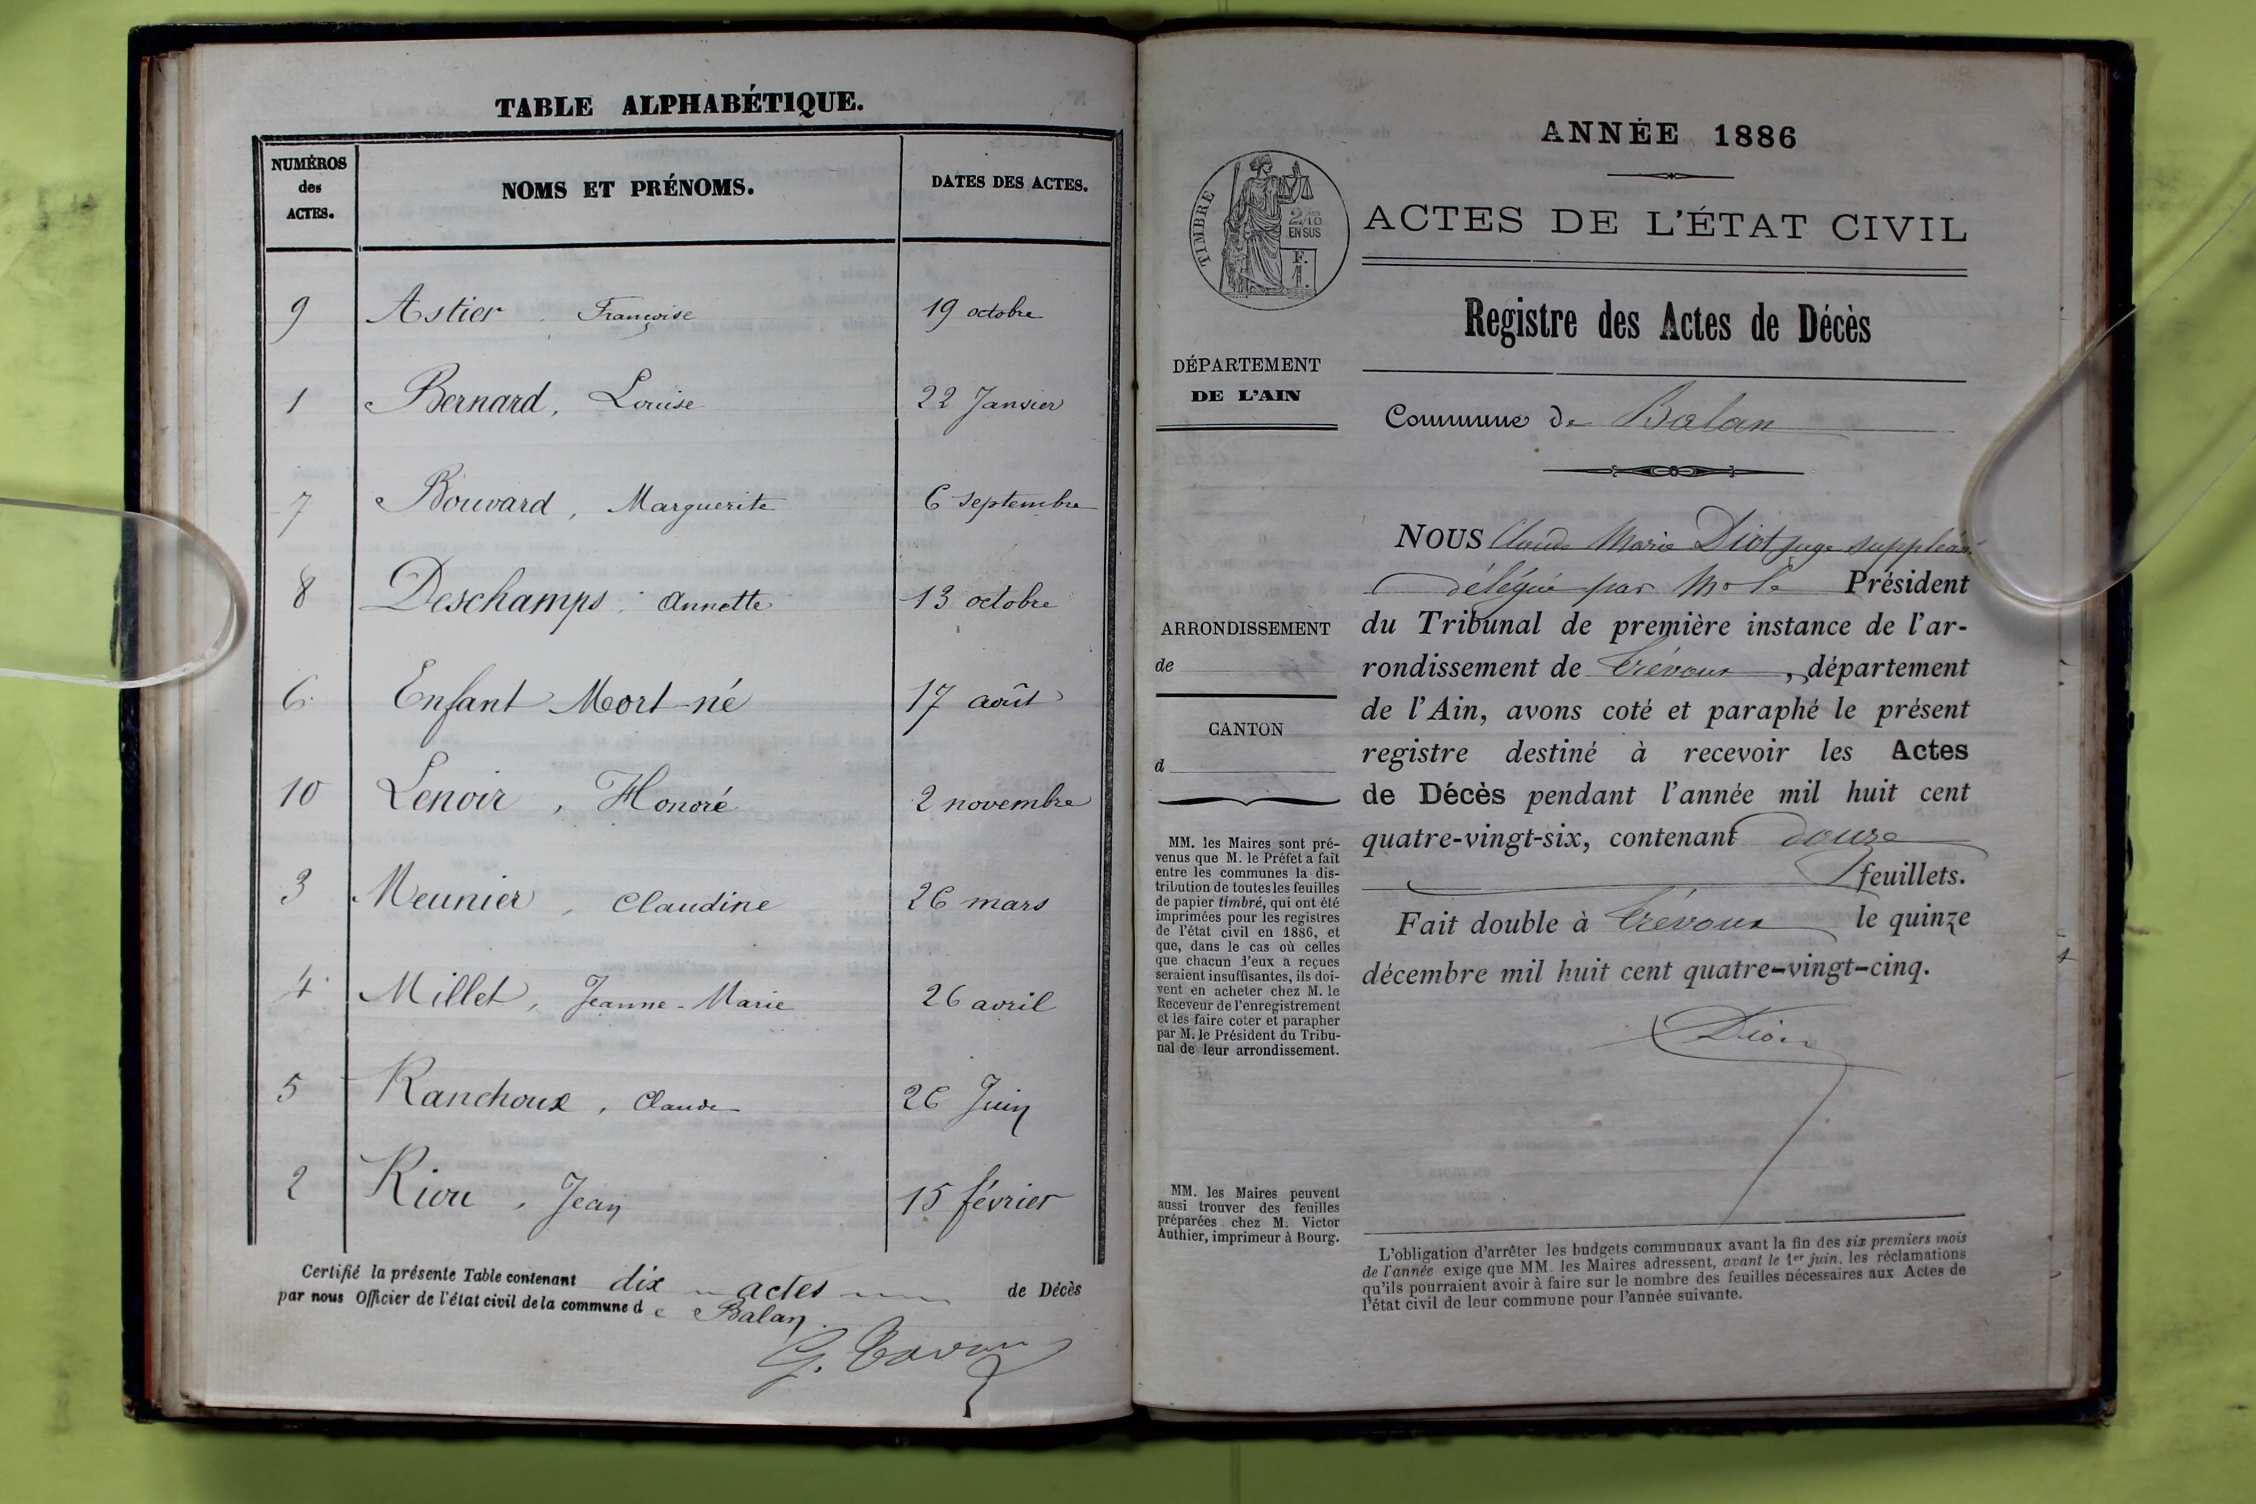 TABLE ALPHABÉTIQUE.
NUMÉROS
des
ACTES.
NOMS ET PRÉNOMS.
DATES DES ACTES.
9 Astier, Françoise 19 octobre
1 Bernard, Louise 22 Janvier
7 Bouvard, Marguerite 6 septembre
8 Deschamps, Annette 13 octobre
6 Enfant Mort-né 17 août
10 Lenoir, Honoré 2 novembre
3 Meunier, Claudine 26 mars
4 Millet, Jeanne-Marie 26 avril
5 Ranchoux, Claude 26 Juin
2 Riou, Jean 15 février
Certifié la présente Table contenant dix actes de Décès
par nous Officier de l'état civil de la commune de Balan.
ANNÉE 1886
TIMBRE
2/10
EN SUS
F.
1.
ACTES DE L'ÉTAT CIVIL
Registre des Actes de Décès
DÉPARTEMENT
DE L'AIN
Commune de Balan
ARRONDISSEMENT
de
CANTON
d
MM. les Maires sont pré-
venus que M. le Préfet a fait
entre les communes la dis-
tribution de toutes les feuilles
de papier timbré, qui ont été
imprimées pour les registres
de l'état civil en 1886, et
que, dans le cas où celles
que chacun d'eux a reçues
seraient insuffisantes, ils doi-
vent en acheter chez M. le
Receveur de l'enregistrement
et les faire coter et parapher
par M. le Président du Tribu-
nal de leur arrondissement.
MM. les Maires peuvent
aussi trouver des feuilles
préparées chez M. Victor
Authier, imprimeur à Bourg.
NOUS Claude Marie Diot juge suppléant
délégué par Mr le Président
du Tribunal de première instance de l'ar-
rondissement de Trévoux, département
de l'Ain, avons coté et paraphé le présent
registre destiné à recevoir les Actes
de Décès pendant l'année mil huit cent
quatre-vingt-six, contenant douze
feuillets.
Fait double à Trévoux le quinze
décembre mil huit cent quatre-vingt-cinq.
L'obligation d'arrêter les budgets communaux avant la fin des six premiers mois
de l'année exige que MM. les Maires adressent, avant le 1er juin, les réclamations
qu'ils pourraient avoir à faire sur le nombre des feuilles nécessaires aux Actes de
l'état civil de leur commune pour l'année suivante.